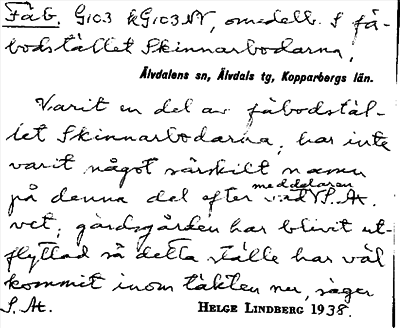 Fäb. G103 & G103 NV, omedelb. S fä-
bodstället Skinnarbodarna,
Älvdalens sn, Älvdals tg, Kopparbergs län.
Varit en del av fäbodstäl-
let Skinnarbodarna, har inte
varit något särskilt namn
på denna del efter vad meddelaren S. At.
vet; gärdsgården har blivit ut-
flyttad så detta ställe har väl
kommit inom täkten nu, säger
S. At. HELGE LINDBERG 1938.